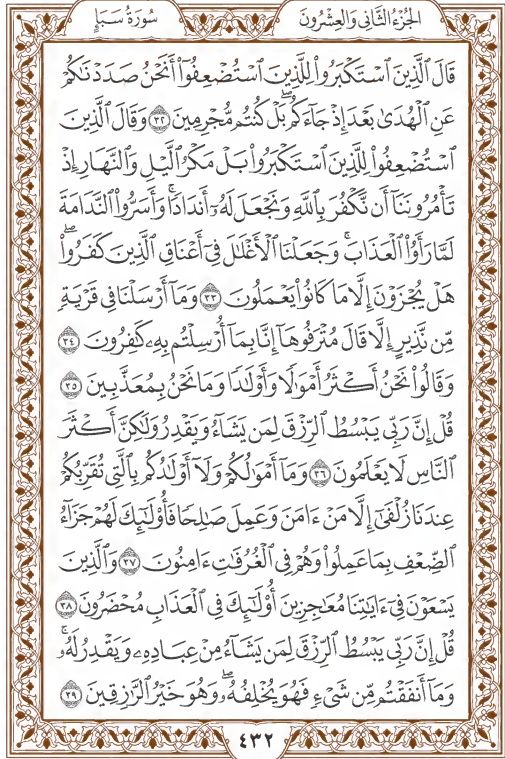 الجُزْءُ الثَّانِي وَالعِشْرُونَ
سُورَةُ سَبَإٍ
قَالَ ٱلَّذِينَ ٱسْتَكْبَرُواْ لِلَّذِينَ ٱسْتُضْعِفُوٓاْ أَنَحْنُ صَدَدْنَٰكُمْ
عَنِ ٱلْهُدَىٰ بَعْدَ إِذْ جَآءَكُمۖ بَلْ كُنتُم مُّجْرِمِينَ ٣٢ وَقَالَ ٱلَّذِينَ
ٱسْتُضْعِفُواْ لِلَّذِينَ ٱسْتَكْبَرُواْ بَلْ مَكْرُ ٱلَّيْلِ وَٱلنَّهَارِ إِذْ
تَأْمُرُونَنَآ أَن نَّكْفُرَ بِٱللَّهِ وَنَجْعَلَ لَهُۥٓ أَندَادًاۚ وَأَسَرُّواْ ٱلنَّدَامَةَ
لَمَّا رَأَوُاْ ٱلْعَذَابَۚ وَجَعَلْنَا ٱلْأَغْلَٰلَ فِيٓ أَعْنَاقِ ٱلَّذِينَ كَفَرُواْۖ
هَلْ يُجْزَوْنَ إِلَّا مَا كَانُواْ يَعْمَلُونَ ٣٣ وَمَآ أَرْسَلْنَا فِي قَرْيَةٍ
مِّن نَّذِيرٍ إِلَّا قَالَ مُتْرَفُوهَآ إِنَّا بِمَآ أُرْسِلْتُم بِهِۦ كَٰفِرُونَ ٣٤
وَقَالُواْ نَحْنُ أَكْثَرُ أَمْوَٰلًا وَأَوْلَٰدًا وَمَا نَحْنُ بِمُعَذَّبِينَ ٣٥
قُلْ إِنَّ رَبِّي يَبْسُطُ ٱلرِّزْقَ لِمَن يَشَآءُ وَيَقْدِرُ وَلَٰكِنَّ أَكْثَرَ
ٱلنَّاسِ لَا يَعْلَمُونَ ٣٦ وَمَآ أَمْوَٰلُكُمْ وَلَآ أَوْلَٰدُكُم بِٱلَّتِي تُقَرِّبُكُمْ
عِندَنَا زُلْفَىٰٓ إِلَّا مَنْ ءَامَنَ وَعَمِلَ صَٰلِحًا فَأُوْلَٰٓئِكَ لَهُمْ جَزَآءُ
ٱلضِّعْفِ بِمَا عَمِلُواْ وَهُمْ فِي ٱلْغُرُفَٰتِ ءَامِنُونَ ٣٧ وَٱلَّذِينَ
يَسْعَوْنَ فِيٓ ءَايَٰتِنَا مُعَٰجِزِينَ أُوْلَٰٓئِكَ فِي ٱلْعَذَابِ مُحْضَرُونَ ٣٨
قُلْ إِنَّ رَبِّي يَبْسُطُ ٱلرِّزْقَ لِمَن يَشَآءُ مِنْ عِبَادِهِۦ وَيَقْدِرُ لَهُۥۚ
وَمَآ أَنفَقْتُم مِّن شَيْءٍ فَهُوَ يُخْلِفُهُۥۖ وَهُوَ خَيْرُ ٱلرَّٰزِقِينَ ٣٩
٤٣٢